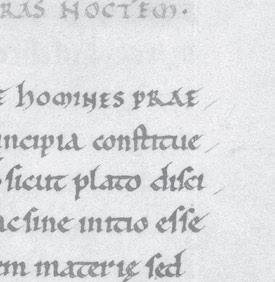 RAS NOCTEM·
E hOMINES PRAE
ncipia conſtitue
ſicut plato diſci
ac ſine initio eſſe
em materię ſed